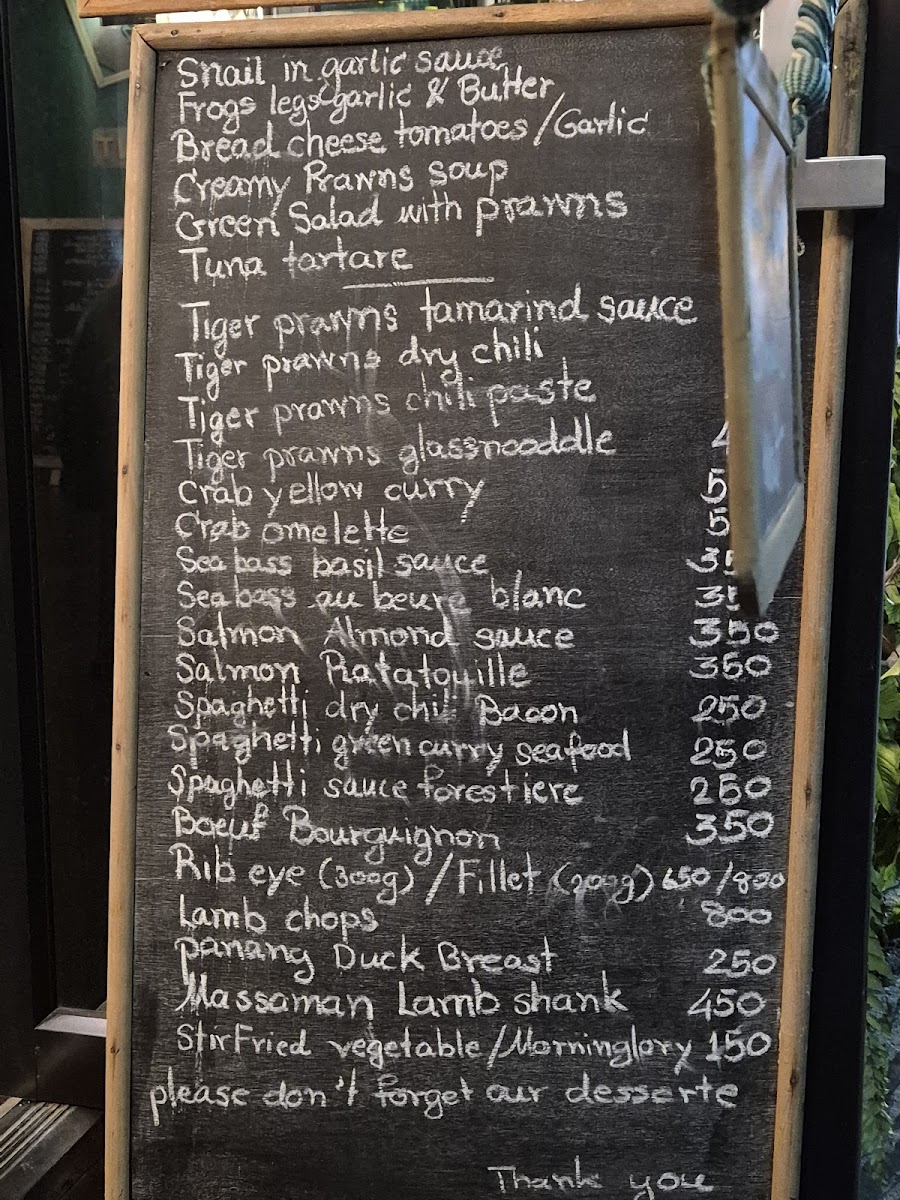 Snail in garlic sauce
Frogs legs garlic & Butter
Bread cheese tomatoes / Garlic
Creamy Prawns soup
Green Salad with prawns
Tuna tartare
Tiger prawns tamarind sauce
Tiger prawns dry chili
Tiger prawns chili paste
Tiger prawns glassnooddle 4
Crab yellow curry 5
Crab omelette 5
Sea bass basil sauce 35
Sea bass au beure blanc 35
Salmon Almond sauce 350
Salmon Ratatouille 350
Spaghetti dry chili Bacon 250
Spaghetti green curry seafood 250
Spaghetti sauce forestiere 250
Boeuf Bourguignon 350
Rib eye (300g) / Fillet (200g) 650 / 800
Lamb chops 800
panang Duck Breast 250
Massaman Lamb shank 450
StirFried vegetable / Morninglory 150
please don't forget our desserte
Thank you